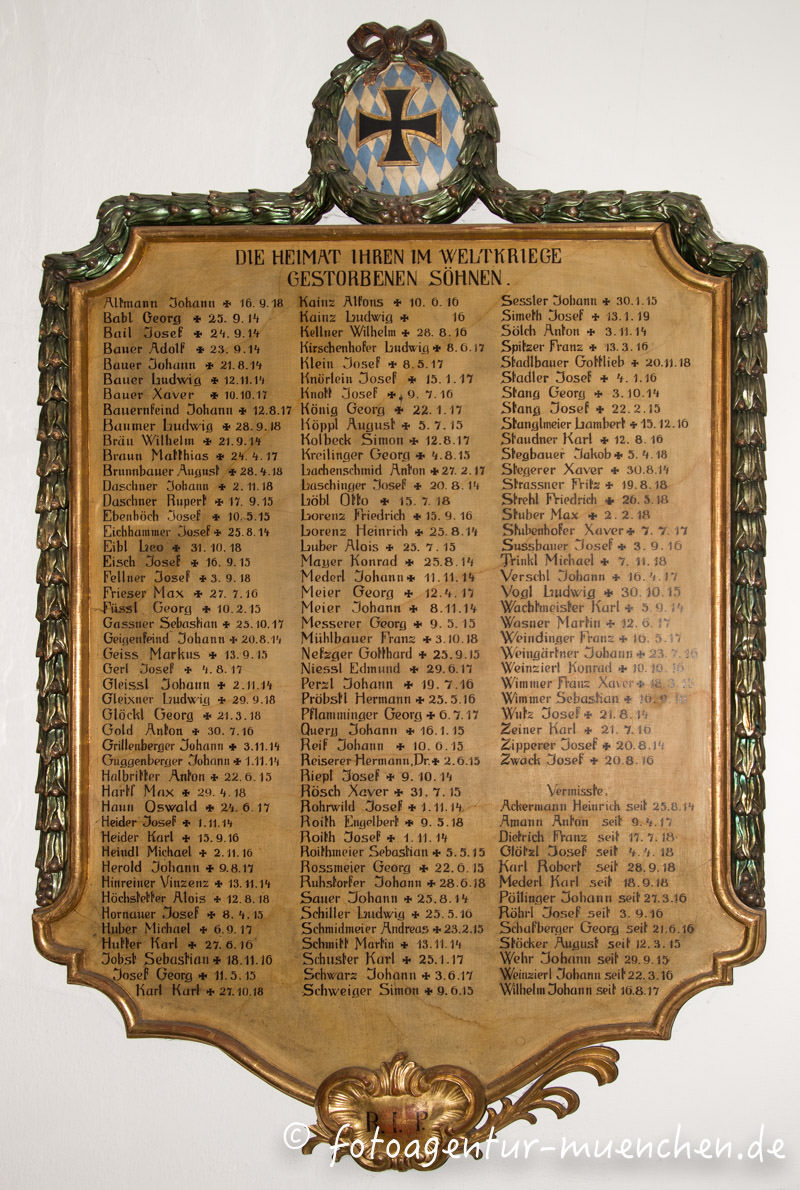 DIE HEIMAT IHREN IM WELTKRIEGE
GESTORBENEN SÖHNEN.
Altmann Johann ✠ 16.9.18
Babl Georg ✠ 25.9.14
Bail Josef ✠ 24.9.14
Bauer Adolf ✠ 23.9.14
Bauer Johann ✠ 21.8.14
Bauer Ludwig ✠ 12.11.14
Bauer Xaver ✠ 10.10.17
Bauernfeind Johann ✠ 12.8.17
Baumer Ludwig ✠ 28.9.18
Bräu Wilhelm ✠ 21.9.14
Braun Matthias ✠ 24.4.17
Brunnbauer August ✠ 28.4.18
Daschner Johann ✠ 2.11.18
Daschner Rupert ✠ 17.9.15
Ebenhöch Josef ✠ 10.5.15
Eichhammer Josef ✠ 25.8.14
Eibl Leo ✠ 31.10.18
Eisch Josef ✠ 16.9.15
Fellner Josef ✠ 3.9.18
Frieser Max ✠ 27.7.16
Füssl Georg ✠ 10.2.15
Gassner Sebastian ✠ 25.10.17
Geigenfeind Johann ✠ 20.8.14
Geiss Markus ✠ 13.9.15
Gerl Josef ✠ 4.8.17
Gleissl Johann ✠ 2.11.14
Gleixner Ludwig ✠ 29.9.18
Glöckl Georg ✠ 21.3.18
Gold Anton ✠ 30.7.16
Grillenberger Johann ✠ 3.11.14
Guggenberger Johann ✠ 1.11.14
Halbritter Anton ✠ 22.6.15
Hartl Max ✠ 29.4.18
Haun Oswald ✠ 24.6.17
Heider Josef ✠ 1.11.14
Heider Karl ✠ 15.9.16
Heindl Michael ✠ 2.11.16
Herold Johann ✠ 9.8.17
Hinreiner Vinzenz ✠ 13.11.14
Höchstetter Alois ✠ 12.8.18
Hornauer Josef ✠ 8.4.15
Huber Michael ✠ 6.9.17
Hutter Karl ✠ 27.6.16
Jobst Sebastian ✠ 18.11.16
Josef Georg ✠ 11.5.15
Karl Karl ✠ 27.10.18
Kainz Alfons ✠ 10.6.16
Kainz Ludwig ✠ 16
Kellner Wilhelm ✠ 28.8.16
Kirschenhofer Ludwig ✠ 8.6.17
Klein Josef ✠ 8.5.17
Knörlein Josef ✠ 15.1.17
Knott Josef ✠ 9.7.16
König Georg ✠ 22.1.17
Köppl August ✠ 5.7.15
Kolbeck Simon ✠ 12.8.17
Kreilinger Georg ✠ 4.8.15
Lachenschmid Anton ✠ 27.2.17
Laschinger Josef ✠ 20.8.14
Löbl Otto ✠ 15.7.18
Lorenz Friedrich ✠ 15.9.16
Lorenz Heinrich ✠ 25.8.14
Luber Alois ✠ 25.7.15
Mayer Konrad ✠ 25.8.14
Mederl Johann ✠ 11.11.14
Meier Georg ✠ 12.4.17
Meier Johann ✠ 8.11.14
Messerer Georg ✠ 9.5.15
Mühlbauer Franz ✠ 3.10.18
Netzger Gotthard ✠ 25.9.15
Niessl Edmund ✠ 29.6.17
Perzl Johann ✠ 19.7.16
Pröbstl Hermann ✠ 25.5.16
Pflamminger Georg ✠ 6.7.17
Query Johann ✠ 16.1.15
Reif Johann ✠ 10.6.15
Reiserer Hermann, Dr. ✠ 2.6.15
Riepl Josef ✠ 9.10.14
Rösch Xaver ✠ 31.7.15
Rohrwild Josef ✠ 1.11.14
Roith Engelbert ✠ 9.5.18
Roith Josef ✠ 1.11.14
Roithmeier Sebastian ✠ 5.5.15
Rossmeier Georg ✠ 22.6.15
Ruhstorfer Johann ✠ 28.6.18
Sauer Johann ✠ 25.8.14
Schiller Ludwig ✠ 25.5.16
Schmidmeier Andreas ✠ 23.2.15
Schmitt Martin ✠ 13.11.14
Schuster Karl ✠ 25.1.17
Schwarz Johann ✠ 3.6.17
Schweiger Simon ✠ 9.6.15
Sessler Johann ✠ 30.1.15
Simeth Josef ✠ 13.1.19
Sölch Anton ✠ 3.11.14
Spitzer Franz ✠ 13.3.16
Stadlbauer Gottlieb ✠ 20.11.18
Stadler Josef ✠ 4.1.16
Stang Georg ✠ 3.10.14
Stang Josef ✠ 22.2.15
Stanglmeier Lambert ✠ 15.12.16
Staudner Karl ✠ 12.8.16
Stegbauer Jakob ✠ 5.4.18
Stegerer Xaver ✠ 30.8.14
Strassner Fritz ✠ 19.8.18
Strehl Friedrich ✠ 26.5.18
Stuber Max ✠ 2.2.18
Stubenhofer Xaver ✠ 7.7.17
Sussbauer Josef ✠ 3.9.16
Trinkl Michael ✠ 7.11.18
Verschl Johann ✠ 16.4.17
Vogl Ludwig ✠ 30.10.15
Wachtmeister Karl ✠ 5.9.14
Wasner Martin ✠ 12.6.17
Weindinger Franz ✠ 16.5.17
Weingärtner Johann ✠ 23.7.16
Weinzierl Konrad ✠ 10.10.16
Wimmer Franz Xaver ✠
Wimmer Sebastian ✠
Wutz Josef ✠ 21.8.14
Zeiner Karl ✠ 21.7.16
Zipperer Josef ✠ 20.8.14
Zwack Josef ✠ 20.8.16
Vermisste.
Ackermann Heinrich seit 25.8.14
Amann Anton seit 9.4.17
Dietrich Franz seit 17.7.18
Glötzl Josef seit 4.4.18
Karl Robert seit 28.9.18
Mederl Karl seit 18.9.18
Pöllinger Johann seit 27.3.16
Röhrl Josef seit 3.9.16
Schafberger Georg seit 21.6.16
Stöcker August seit 12.3.15
Wehr Johann seit 29.9.15
Weinzierl Johann seit 22.3.16
Wilhelm Johann seit 16.8.17
R.I.P.
© fotoagentur-muenchen.de